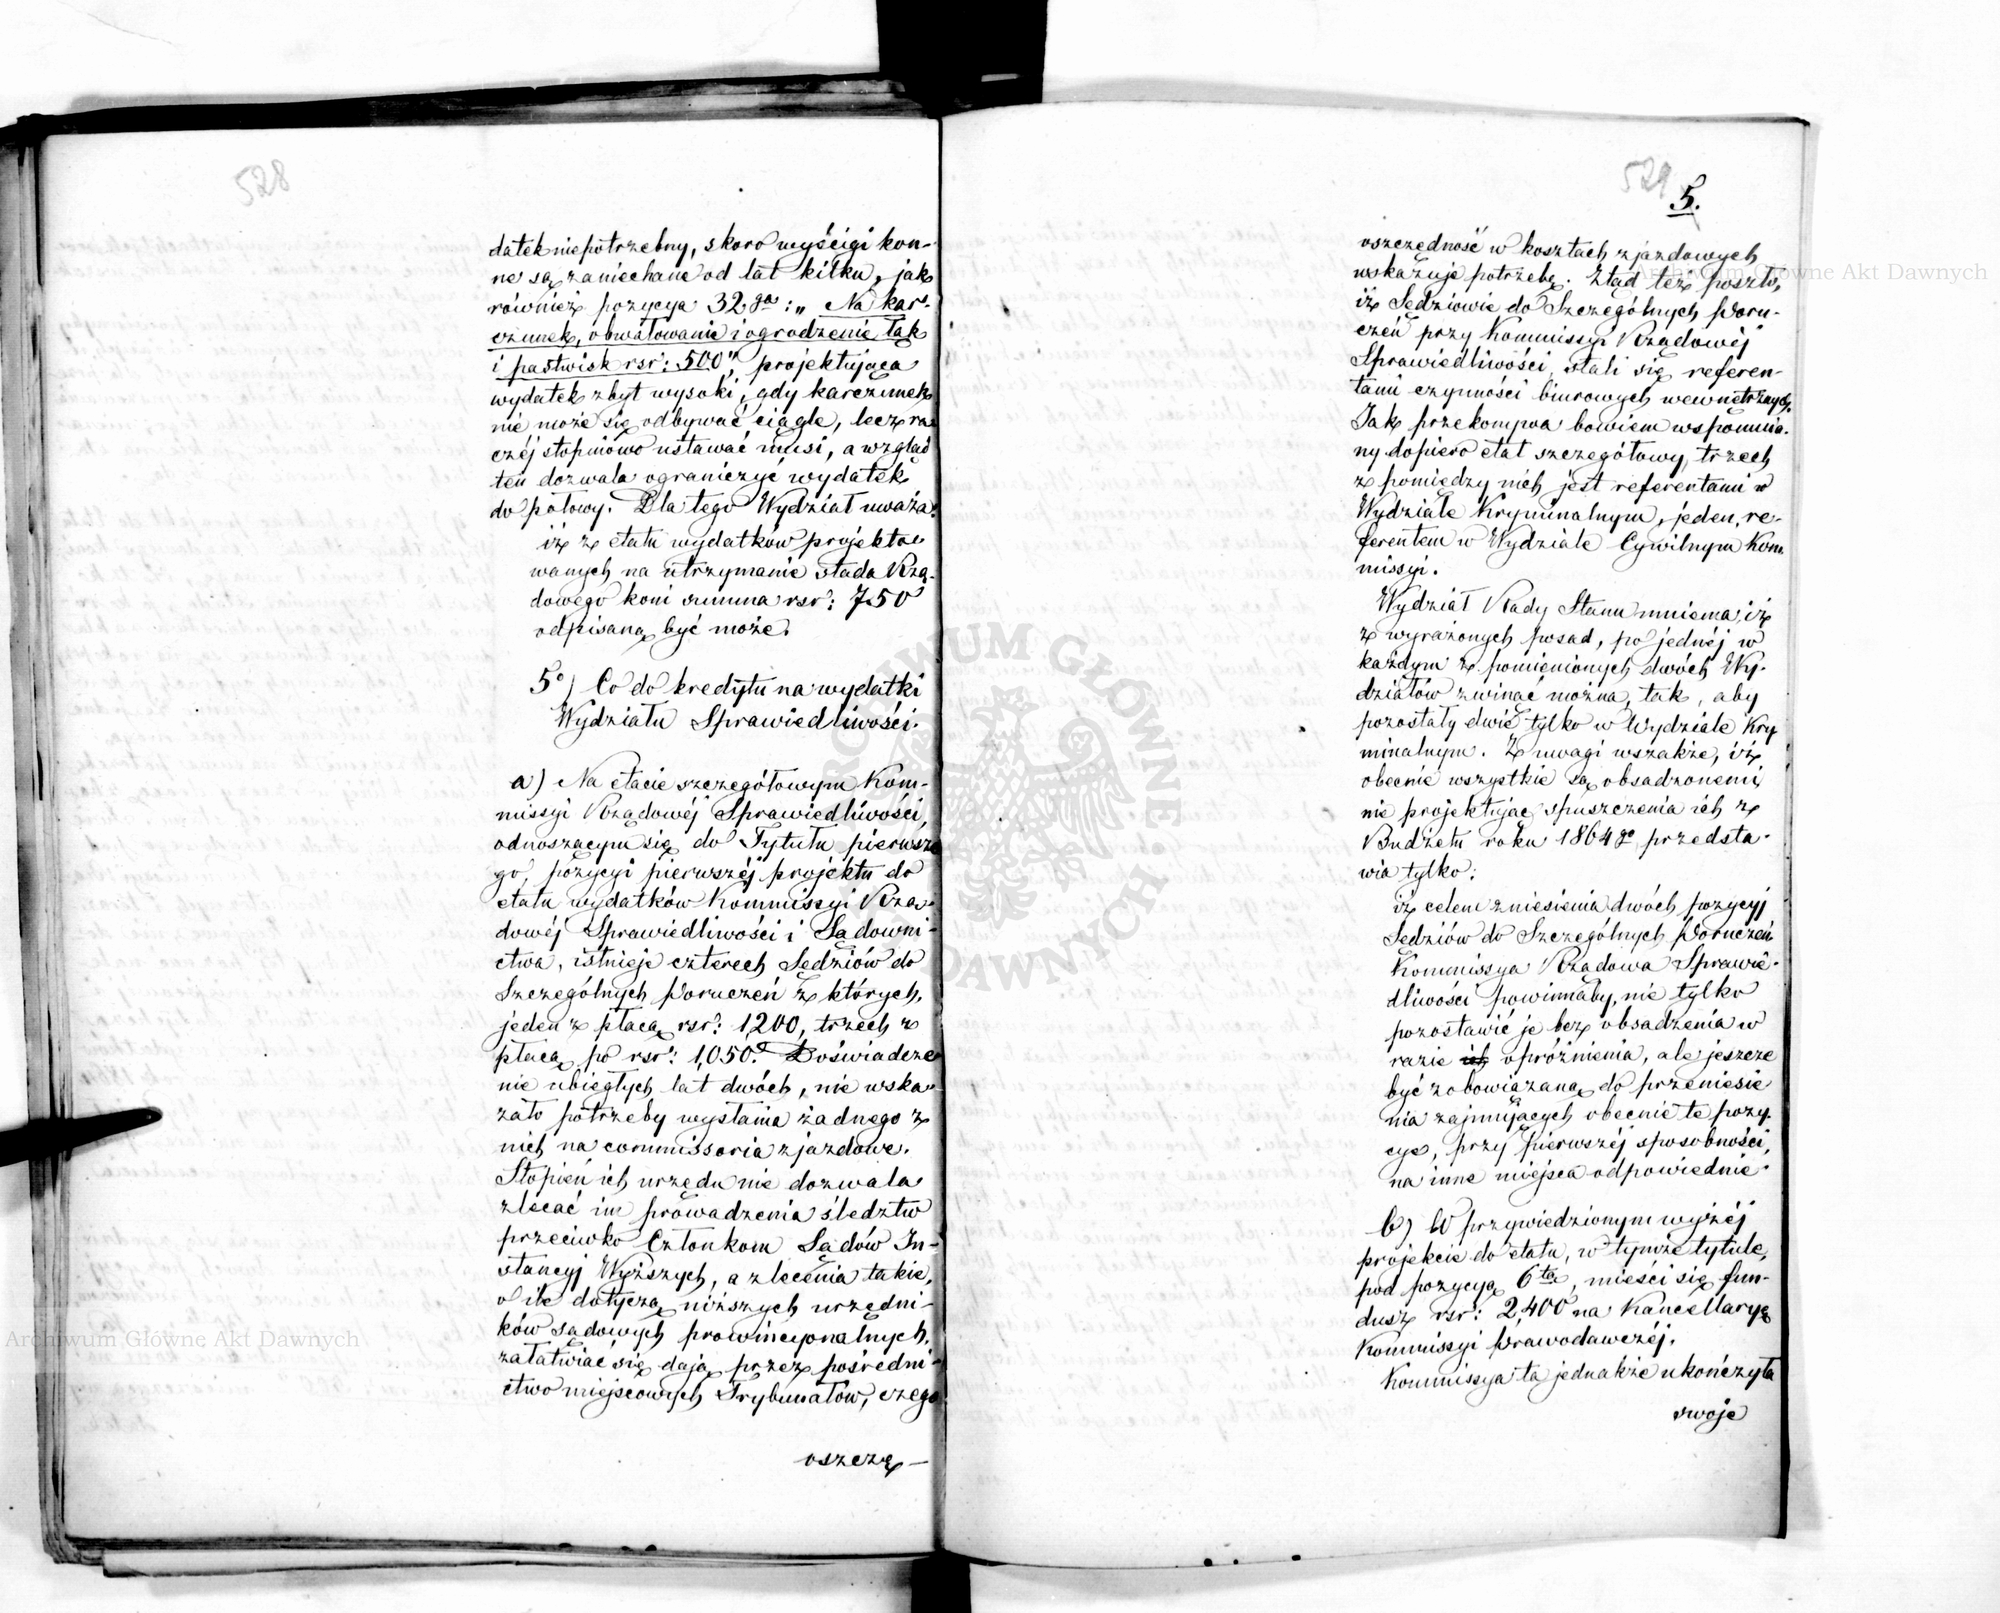 528
datek niepotrzebny, skoro wyścigi kon-
ne są zaniechane od lat kilku, jak
również pozycya 32ga: „Na kar-
czunek, obwałowanie i ogrodzenie łąk
i pastwisk rsr: 500", projektująca
wydatek zbyt wysoki, gdy karczunek
nie może się odbywać ciągle, lecz ra-
czéj stopniowo ustawać musi, a wzgląd
ten dozwala ograniczyć wydatek
do połowy. Dla tego Wydział uważa:
iż z etatu wydatków projekto-
wanych na utrzymanie stada Rzą-
dowego koni summa rsr: 750
odpisaną być może.
5o) Co do kredytu na wydatki
Wydziału Sprawiedliwości.
a) Na etacie szczegółowym Kom-
missyi Rządowéj Sprawiedliwości,
odnoszącym się do Tytułu pierwsze
go, pozycyi pierwszéj projektu do
etatu wydatków Kommissyi Rzą-
dowéj Sprawiedliwości i Sądowni-
ctwa, istnieje czterech Sędziów do
Szczególnych Poruczeń z których,
jeden z płacą rsr: 1,200, trzech z
płacą po rsr: 1,050. Doświadcze
nie ubiegłych lat dwóch, nie wska-
zało potrzeby wysłania żadnego z
nich na commissoria zjazdowe.
Stopień ich urzędu nie dozwala
zlecać im prowadzenia śledztw
przeciwko Członkom Sądów In-
stancyj Wyższych, a zlecenia takie,
o ile dotyczą niższych urzędni-
ków sądowych prowincyonalnych,
załatwiać się dają przez pośredni-
ctwo miejscowych Trybunałów, czego
oszczę-
529
5.
oszczędność w kosztach zjazdowych
wskazuje potrzebę. Ztąd też poszło,
iż Sędziowie do Szczególnych Poru-
czeń przy Kommissyi Rządowéj
Sprawiedliwości, stali się referen-
tami czynności biurowych wewnętrznych.
Jak przekonywa bowiem wspomnia-
ny dopiero etat szczegółowy, trzech
z pomiędzy nich jest referentami w
Wydziale Kryminalnym, jeden re-
ferentem w Wydziale Cywilnym Kom-
missyi.
Wydział Rady Stanu mniema, iż
z wyrażonych posad, po jednéj w
każdym z pomienionych dwóch Wy-
działów zwinąć można, tak, aby
pozostały dwie tylko w Wydziale Kry
minalnym. Z uwagi wszakże, iż
obecnie wszystkie są obsadzonemi,
nie projektując spuszczenia ich z
Budżetu roku 1864go, przedsta-
wia tylko:
iż celem zniesienia dwóch pozycyj
Sędziów do Szczególnych Poruczeń
Kommissya Rządowa Sprawie-
dliwości powinnaby, nie tylko
pozostawić je bez obsadzenia w
razie ich opróżnienia, ale jeszcze
być zobowiązaną do przeniesie
nia zajmujących obecnie te pozy-
cye, przy pierwszéj sposobności,
na inne miejsca odpowiednie.
b) W przywiedzionym wyżéj
projekcie do etatu, w tymże tytule,
pod pozycyą 6tą, mieści się fun-
dusz rsr: 2,400 na Kancellaryę
Kommissyi Prawodawczéj.
Kommissya ta jednakże ukończyła
swoje
Archiwum Główne Akt Dawnych
Archiwum Główne Akt Dawnych
ARCHIWUM GŁÓWNE AKT DAWNYCH